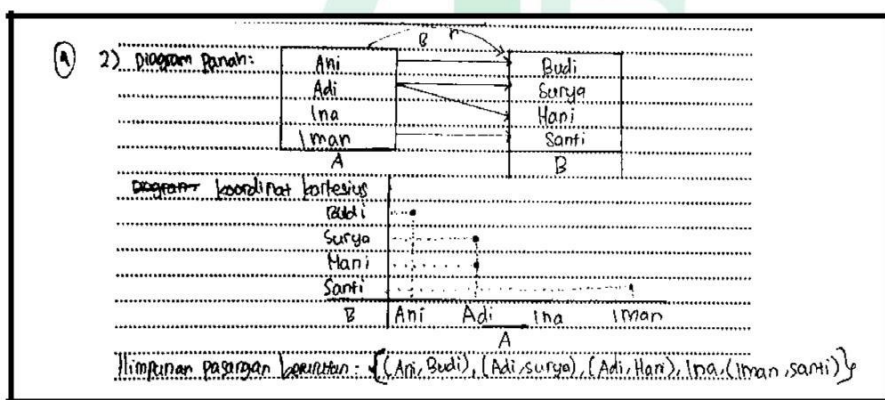 a 2) Diagram Panah: B n
Ani Budi
Adi Surya
Ina Hani
Iman Santi
A B
Diagram koordinat kartesius
Budi
Surya
Hani
Santi
B Ani Adi Ina Iman
A
Himpunan pasangan berurutan : {(Ani, Budi), (Adi, Surya), (Adi, Hani), Ina, (Iman, Santi)}